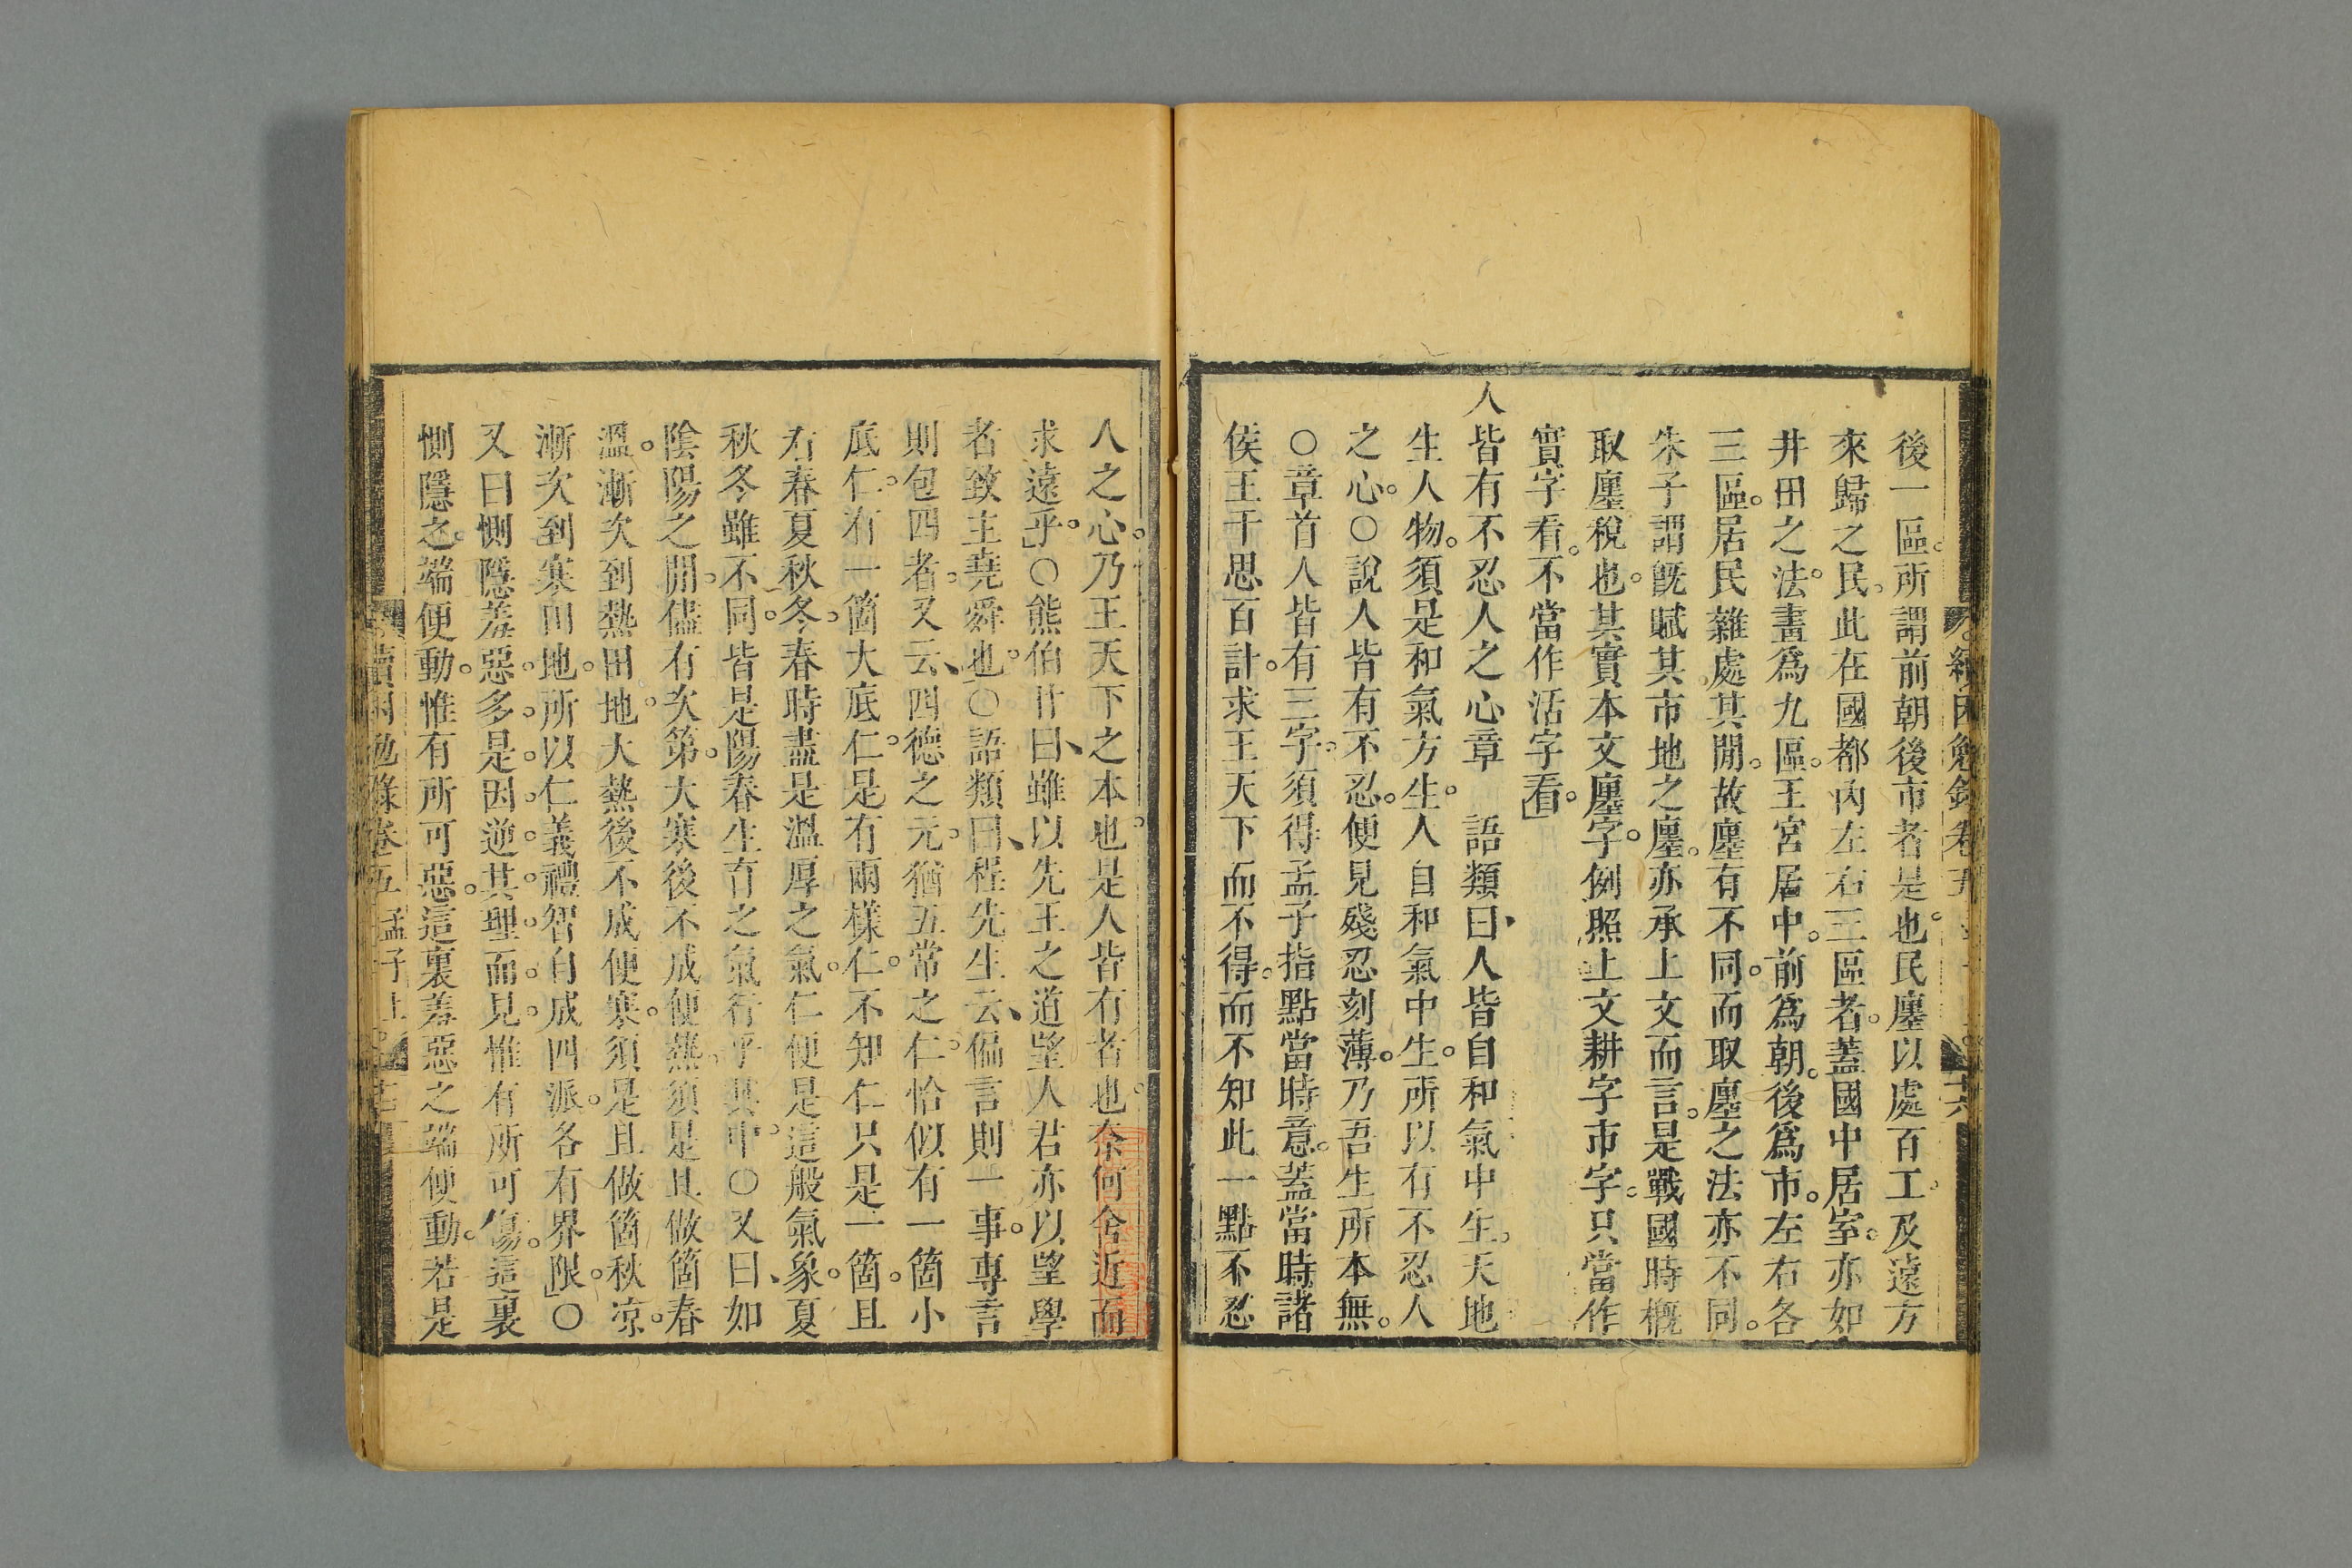 後一區。所謂前朝後市者是也。民廛以處百工。及遠方
來歸之民。此在國都內左右三區者。蓋國中居室。亦如
井田之法。畫爲九區。王宮居中。前爲朝。後爲市。左右各
三區。居民雜處其閒。故廛有不同。而取廛之法亦不同。
朱子謂旣賦其市地之廛。亦承上文而言。是戰國時槪
取廛稅也。其實本文廛字。例照上文耕字市字。只當作
實字看。不當作活字看。」
人皆有不忍人之心章　語類曰、人皆自和氣中生。天地
生人物。須是和氣方生。人自和氣中生。所以有不忍人
之心。○說人皆有不忍。便見殘忍刻薄。乃吾生所本無。
○章首人皆有三字。須得孟子指點當時意。蓋當時諸
侯王千思百計。求王天下而不得。而不知此一點不忍
人之心。乃王天下之本也。是人皆有者也。奈何舍近而
求遠乎。」○熊伯甘曰、雖以先王之道望人君。亦以望學
者致主堯舜也。○語類曰、程先生云、偏言則一事。專言
則包四者。又云、四德之元。猶五常之仁。恰似有一箇小
底仁。有一箇大底仁。是有兩樣仁。不知仁只是一箇。且
看春夏秋冬。春時盡是溫厚之氣。仁便是這般氣象。夏
秋冬雖不同。皆是陽春生育之氣。行乎其中。○又曰、如
陰陽之閒。儘有次第。大寒後不成便熱。須是且做箇春
溫。漸次到熱田地。大熱後不成便寒。須是且做箇秋凉。
漸次到寒田地。所以仁義禮智自成四派。各有界限。」○
又曰惻隱羞惡。多是因逆其理而見。惟有所可傷。這裏
惻隱之端便動。惟有所可惡。這裏羞惡之端便動。若是
續困勉錄卷五　孟子上